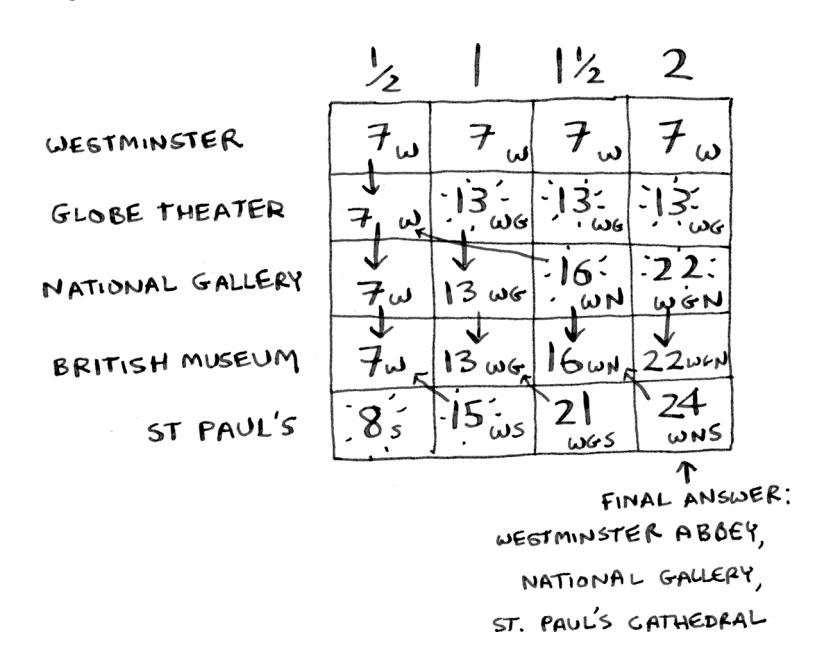 ½ 1 1½ 2
WESTMINSTER 7 W 7 W 7 W 7 W
GLOBE THEATER 7 W 13 WG 13 WG 13 WG
NATIONAL GALLERY 7 W 13 WG 16 WN 22 WGN
BRITISH MUSEUM 7 W 13 WG 16 WN 22 WGN
ST PAUL'S 8 S 15 WS 21 WGS 24 WNS
FINAL ANSWER:
WESTMINSTER ABBEY,
NATIONAL GALLERY,
ST. PAUL'S CATHEDRAL